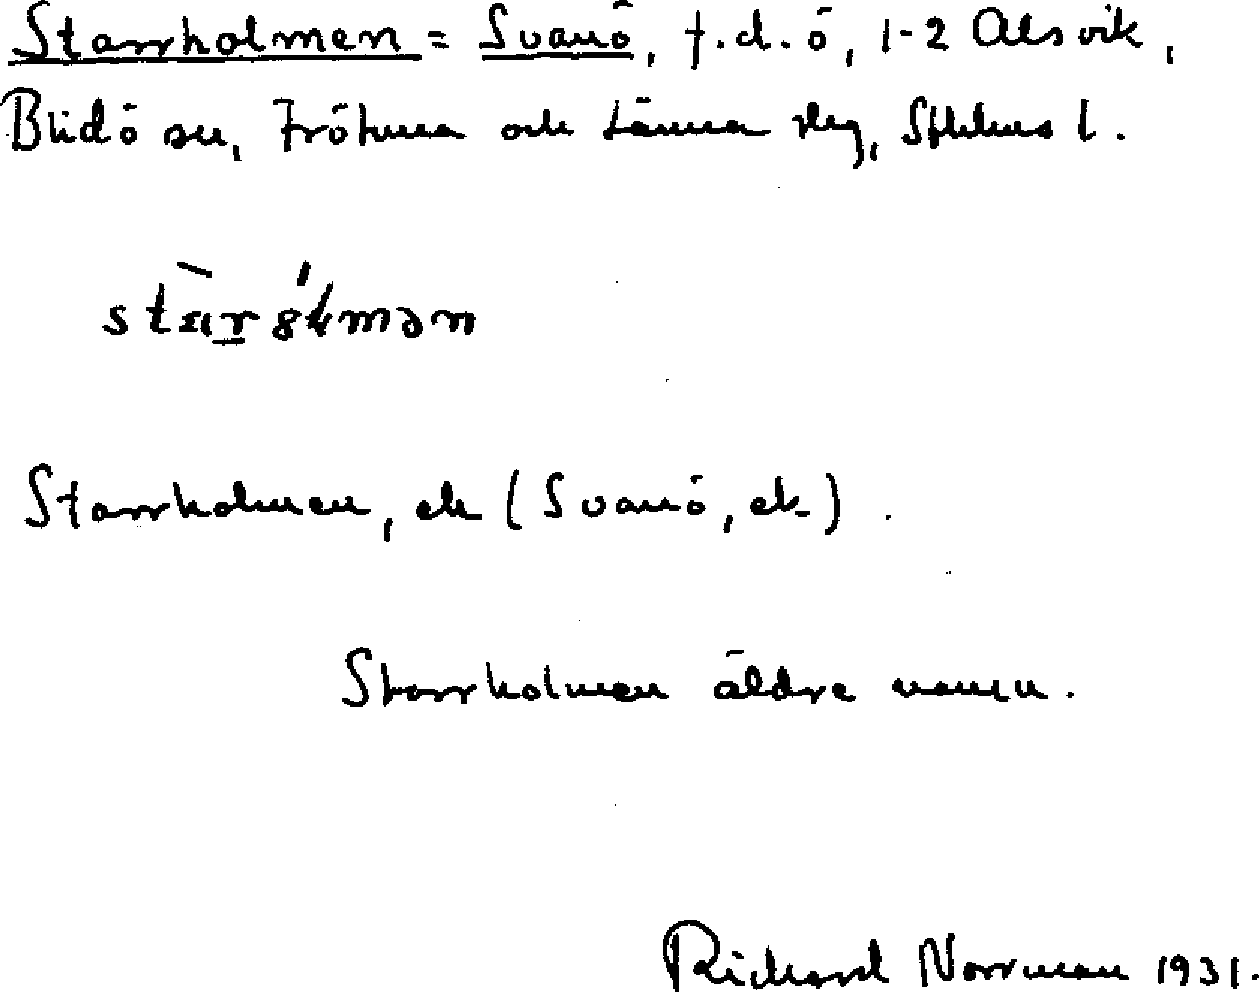 Starrholmen = Svanö, f.d. ö, 1-2 Alsvik,
Blidö sn, Frötuna och Länna slg, Sthlms l.
Starrholmen, ek (Svanö, ek)
Starrholmen äldre namn.
Richard Norrman 1931.